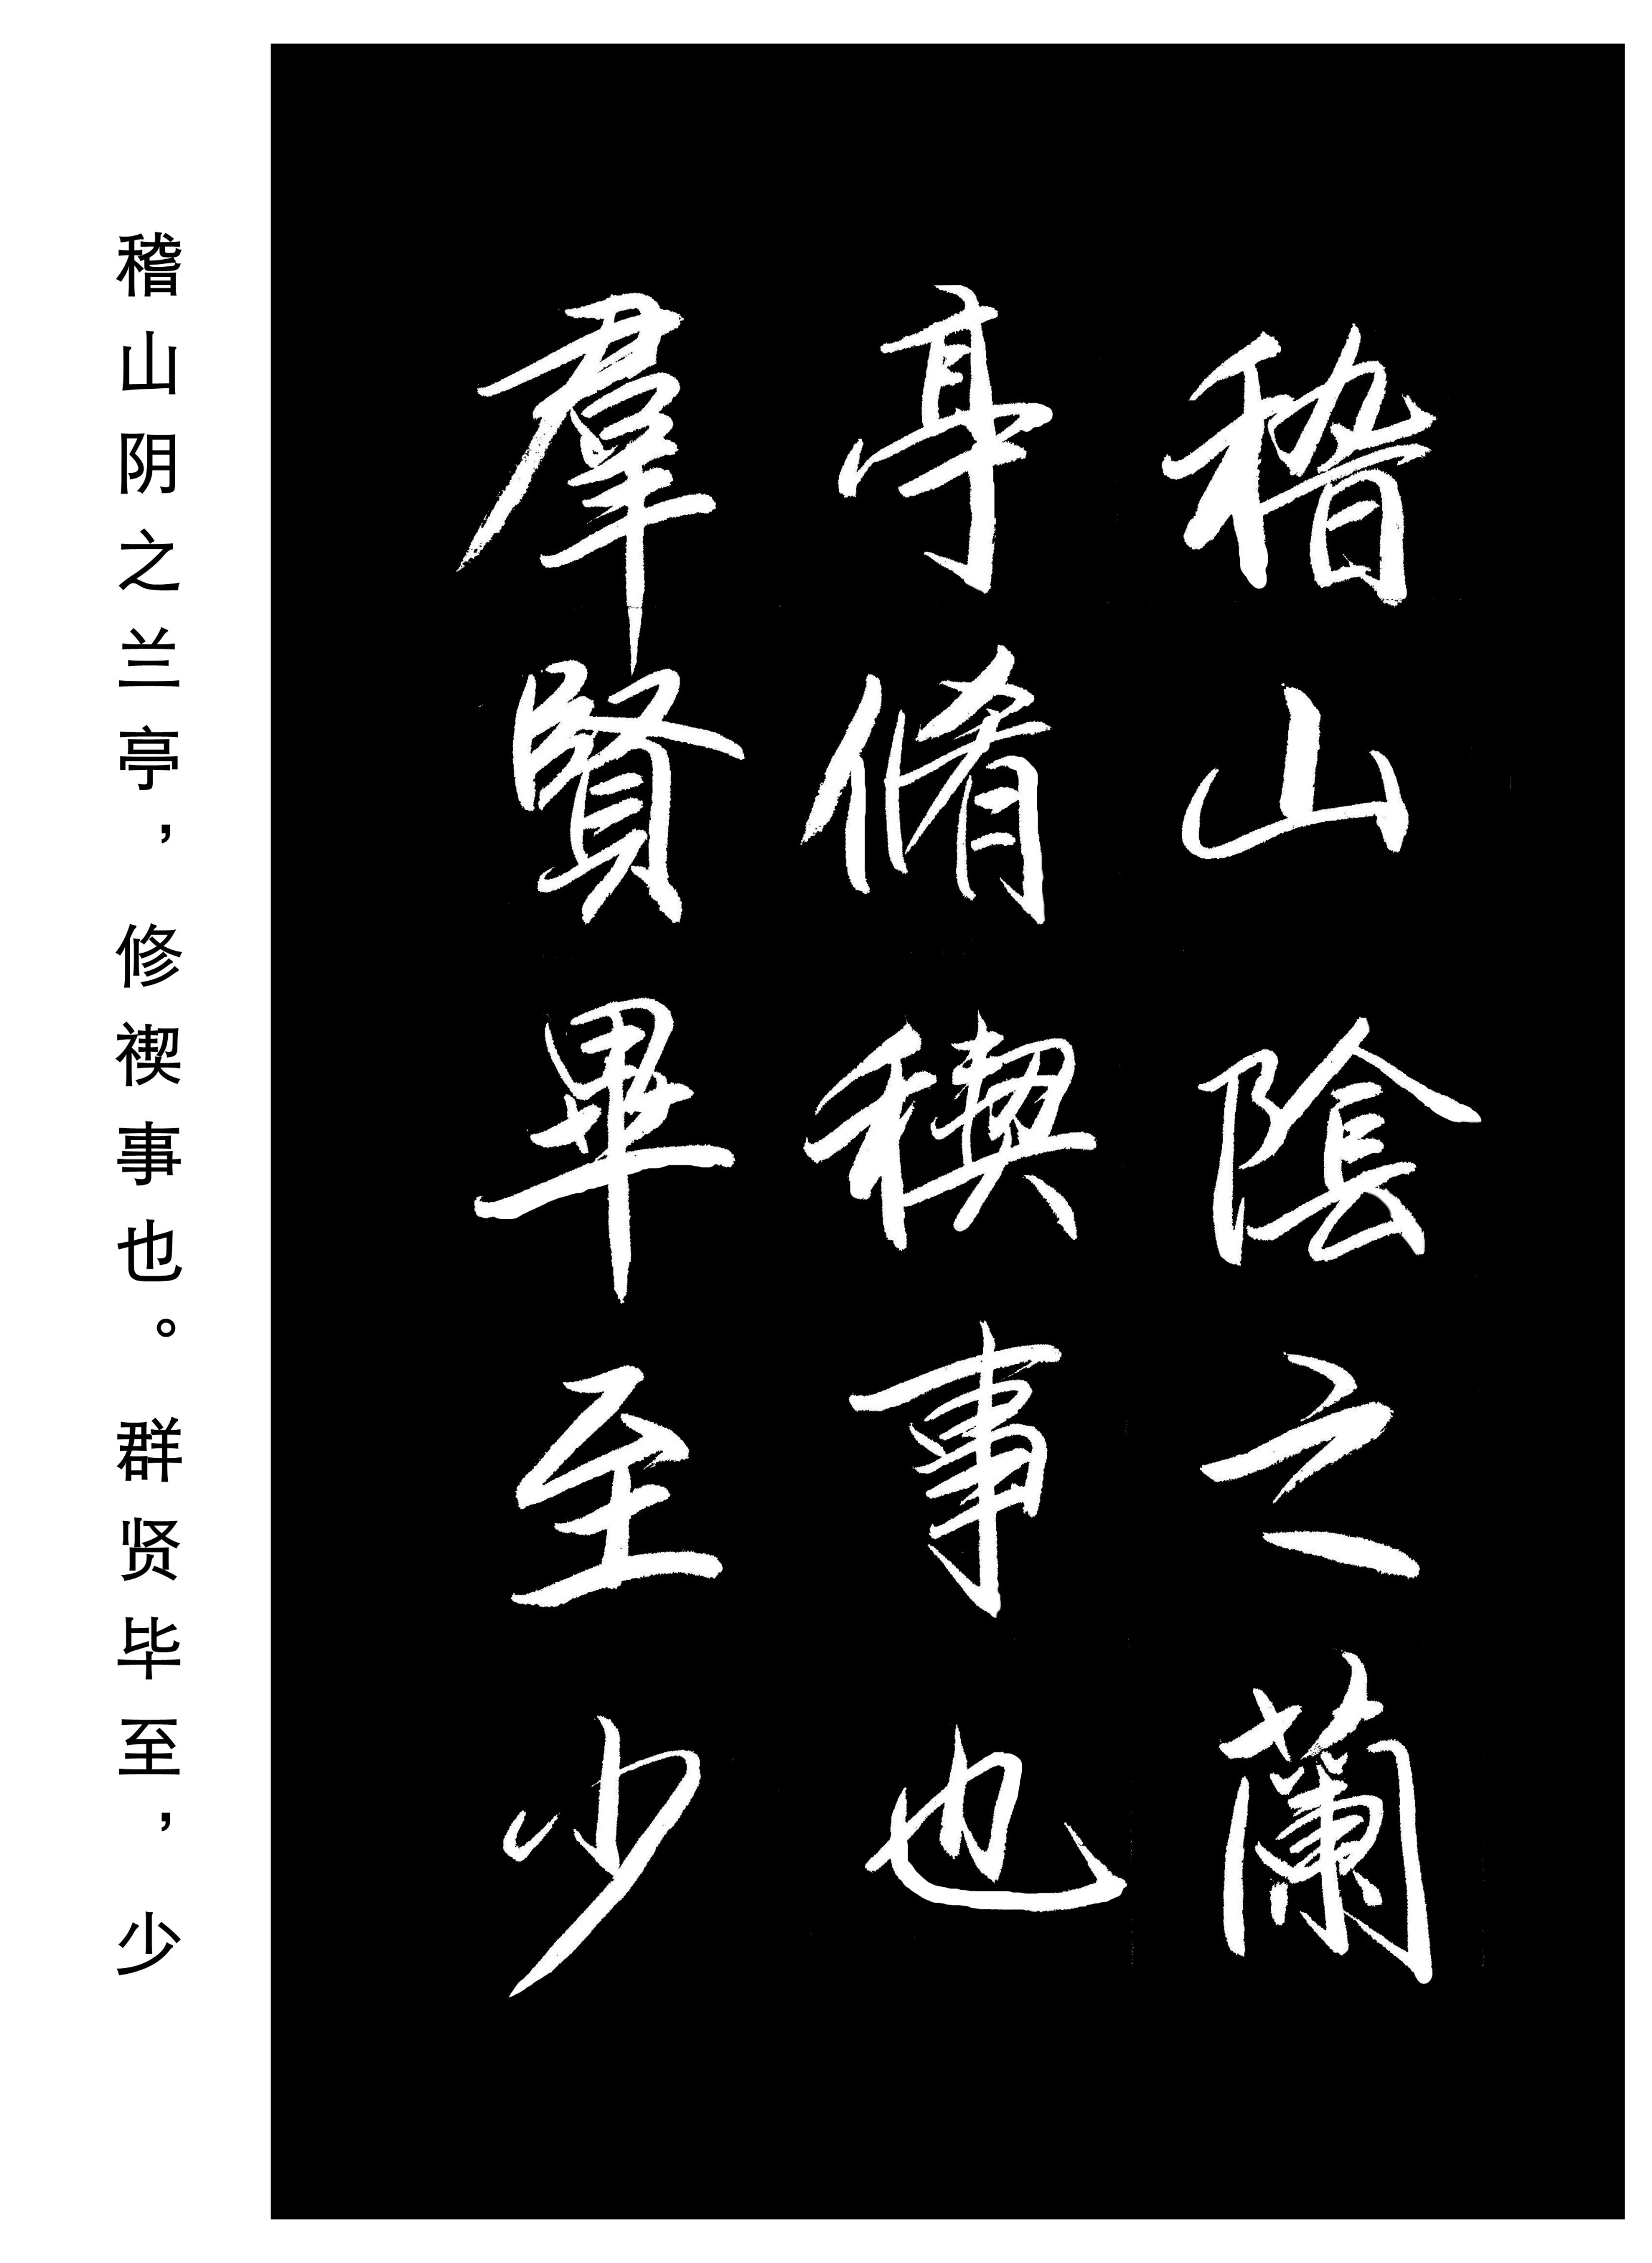 稽山陰之蘭
亭脩稧事也
羣賢畢至少
稽山阴之兰亭，修禊事也。群贤毕至，少